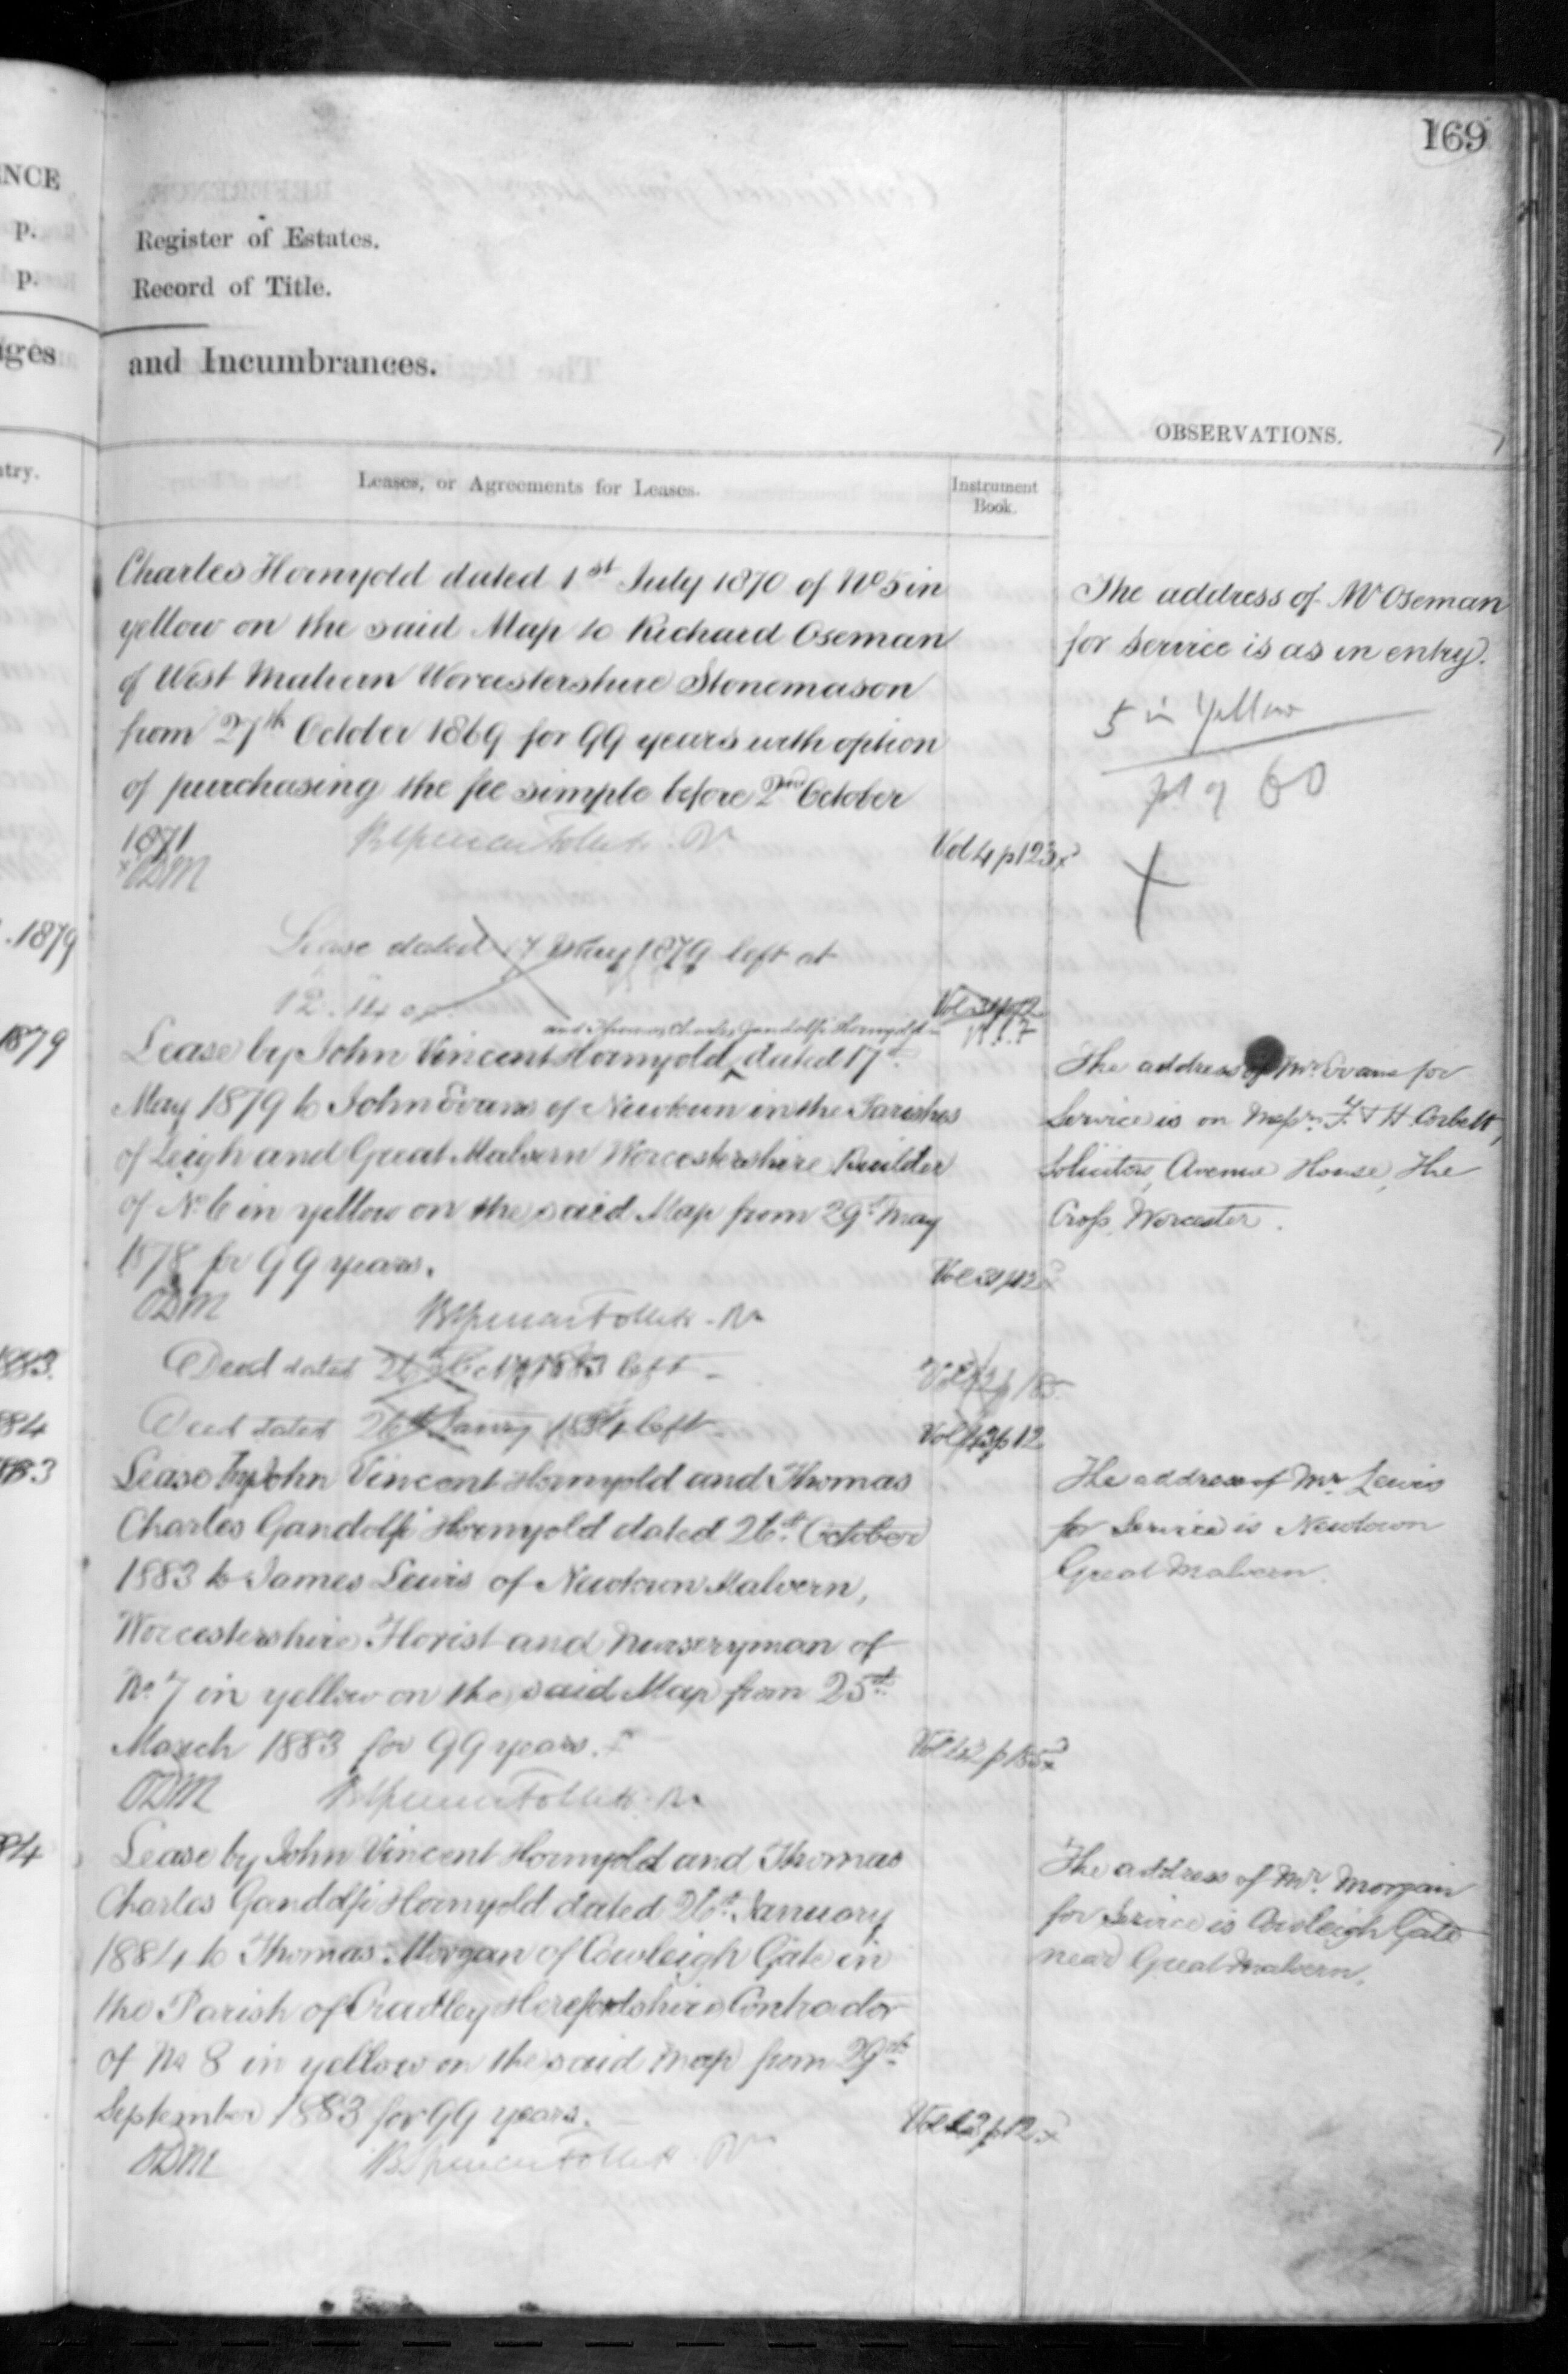 169
NCE
p.
p.
ges
try.
Register of Estates.
Record of Title.
and Incumbrances.
OBSERVATIONS.
Leases, or Agreements for Leases.
Instrument
Book.
Charles Hornyold dated 1st July 1870 of No 5 in
yellow on the said Map to Richard Oseman
of West Malvern Worcestershire Stonemason
from 27th October 1869 for 99 years with option
of purchasing the fee simple before 2nd October
1871
Vol 4 p 123
ODM
The address of Mr Oseman
for Service is as in entry.
5 in Yellow
pt of 60
1879
Lease dated 17 May 1879 left at
12.
Vol 31 p 12
1879
and Thomas Charles Gandolfi Hornyold
Lease by John Vincent Hornyold dated 17th
May 1879 to John Evans of Newtown in the Parishes
of Leigh and Great Malvern Worcestershire Builder
of No 6 in yellow on the said Map from 29th May
1878 for 99 years.
Vol 31 p 12
ODM
The address of Mr Evans for
Service is on Messrs F & H Corbett,
Solicitors, Avenue House, The
Cross, Worcester.
883.
Deed dated 26th Oct 1883 left
Vol 42 p 185
884
Deed dated 26th January 1884 left
Vol 43 p 12
883
Lease by John Vincent Hornyold and Thomas
Charles Gandolfi Hornyold dated 26th October
1883 to James Lewis of Newtown Malvern,
Worcestershire Florist and Nurseryman of
No 7 in yellow on the said Map from 25th
March 1883 for 99 years.
Vol 42 p 185
ODM
The address of Mr Lewis
for Service is Newtown
Great Malvern.
84
Lease by John Vincent Hornyold and Thomas
Charles Gandolfi Hornyold dated 26th January
1884 to Thomas Morgan of Cowleigh Gate in
the Parish of Cradley Herefordshire Contractor
of No 8 in yellow on the said Map from 29th
September 1883 for 99 years.
Vol 43 p 12
ODM
The address of Mr Morgan
for Service is Cowleigh Gate
near Great Malvern.